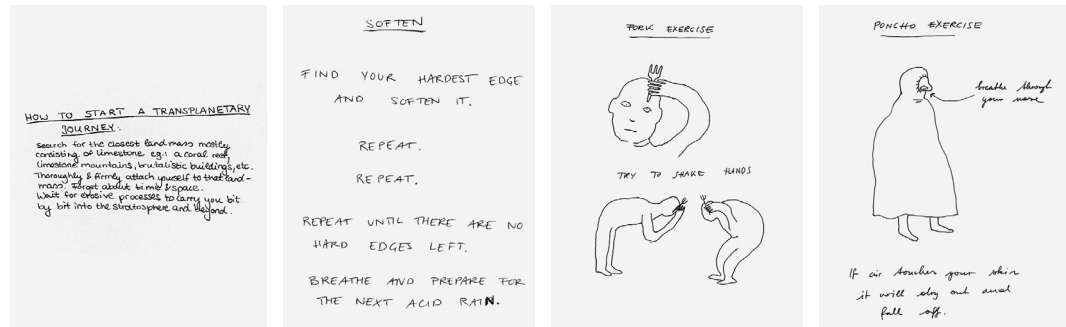 HOW TO START A TRANSPLANETARY
JOURNEY:
Search for the closest land mass mostly
consisting of limestone e.g.: a coral reef,
limestone mountains, brutalistic buildings, etc.
Thoroughly & firmly attach yourself to that land-
mass. Forget about time & space.
Wait for erosive processes to carry you bit
by bit into the stratosphere and beyond.
SOFTEN
FIND YOUR HARDEST EDGE
AND SOFTEN IT.
REPEAT.
REPEAT.
REPEAT UNTIL THERE ARE NO
HARD EDGES LEFT.
BREATHE AND PREPARE FOR
THE NEXT ACID RAIN.
FORK EXERCISE
TRY TO SHAKE HANDS
PONCHO EXERCISE
breathe through
your nose
If air touches your skin
it will dry out and
fall off.